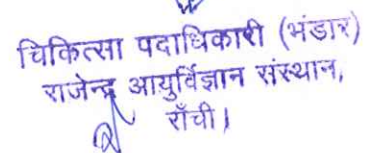 चिकित्सा पदाधिकारी (भंडार)
राजेन्द्र आयुर्विज्ञान संस्थान,
राँची।